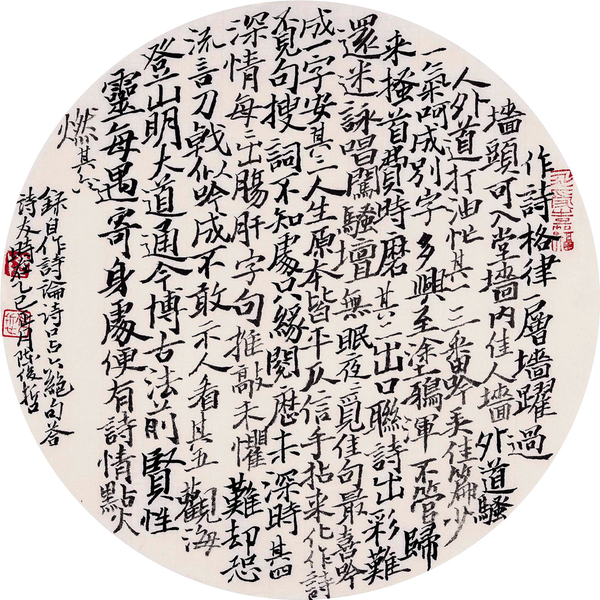 作詩格律一層墻躍過
墻頭可入堂墻内佳人墻外道騷
人外道打油忙其一三番吟来佳篇少
一氣呵成別字多興至塗鴉軍不管歸
来搔首費時磨其二出口聯詩出彩難
還迷詠唱闖騷壇無眠夜覓佳句最喜吟
成一字安其三人生原本皆平仄信手拈来化作詩
覓句搜詞不知處只緣閱歷未深時其四
深情每々出腸肝字句推敲未懼難却恐
流言刀戟似吟成不敢示人看其五觀海
登山明大道通今博古法前賢性
靈每遇寄身處便有詩情點火
燃其六
録自作詩論詩口占六絶句答
詩友乙巳月俊哲